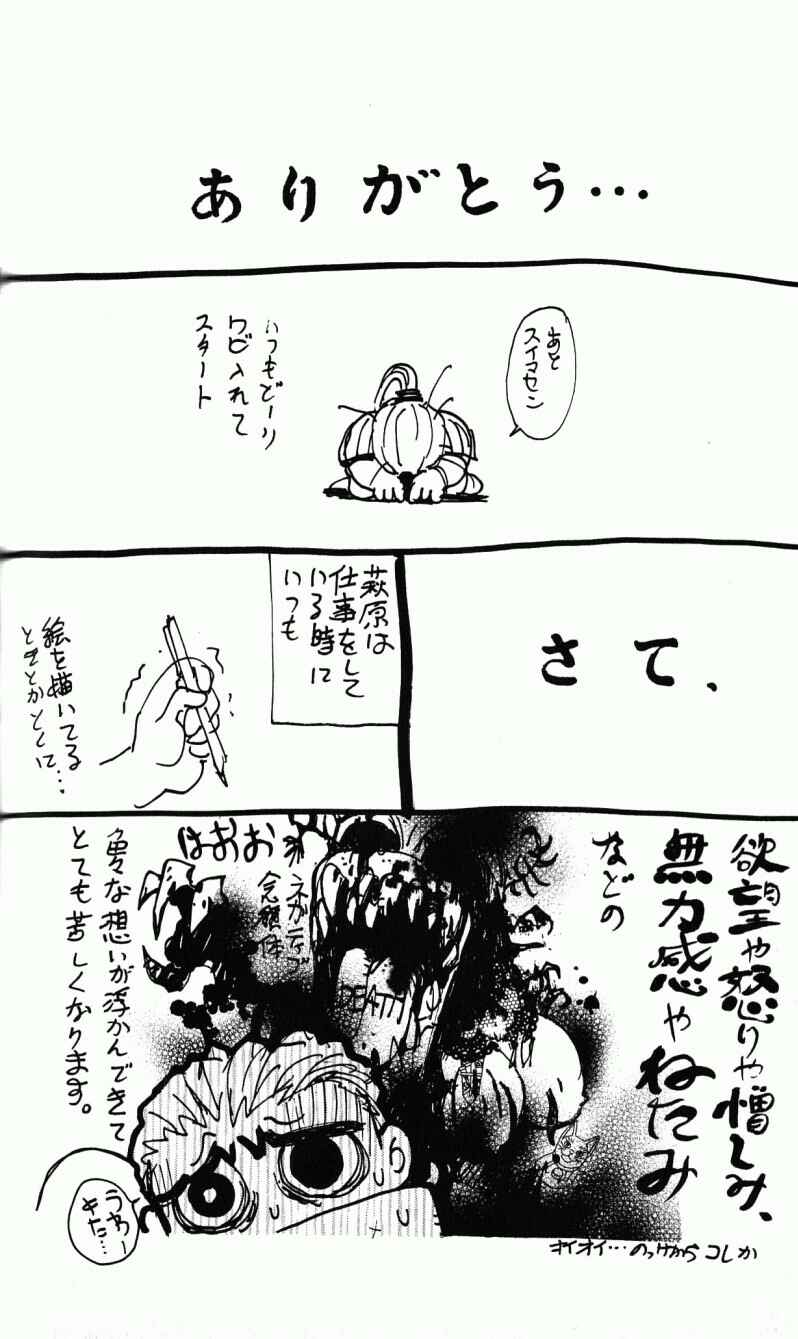 ありがとう…
あと
スイマセン
いつもどーり
ワビ入れて
スタート
さて、
萩原は
仕事をして
いる時に
いつも
絵を描いてる…
ときとかとくに
欲望や怒りや憎しみ、
無力感やねたみ
などの
DEATH
ネガティブ
念積体
おおおは
色々な想いが浮かんできて
とても苦しくなります。
うわー
きた…
オイオイ…のっけからコレか